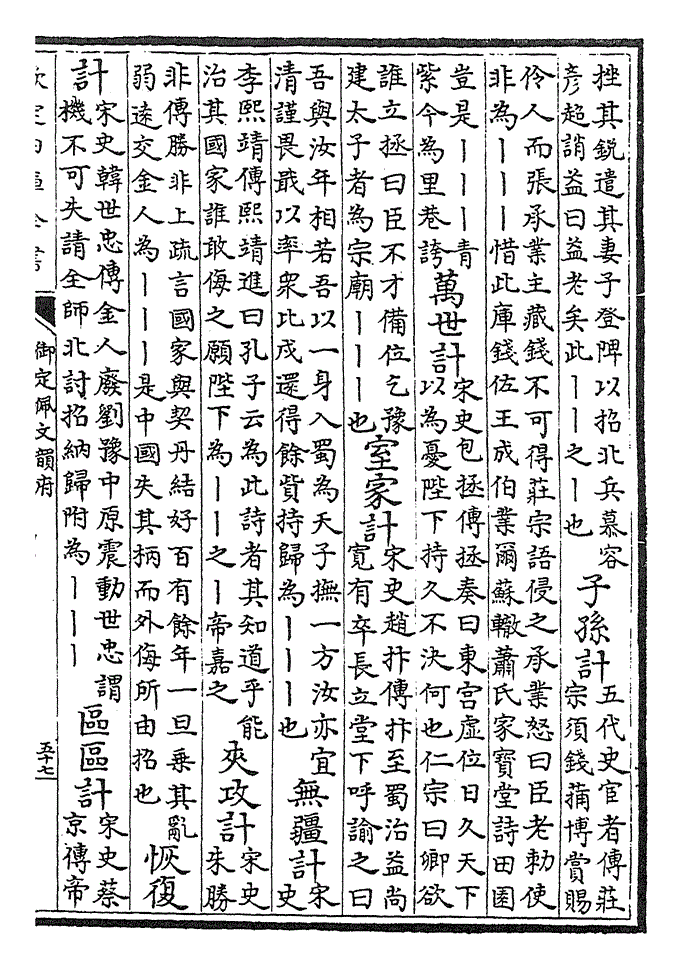 挫其銳遣其妻子登陴以招北兵慕容
彥超誚益曰益老矣此丨丨之丨也
子孫計
五代史宦者傳莊
宗須錢蒱博賞賜
伶人而張承業主藏錢不可得莊宗語侵之承業怒曰臣老勅使
非為丨丨丨惜此庫錢佐王成伯業爾蘇轍蕭氏家寶堂詩田園
豈是丨丨丨青
紫今為里巷誇
萬世計
宋史包拯傳拯奏曰東宮虛位日久天下
以為憂陛下持久不決何也仁宗曰卿欲
誰立拯曰臣不才備位乞豫
建太子者為宗廟丨丨丨也
室家計
宋史趙抃傳抃至蜀治益尚
寬有卒長立堂下呼諭之曰
吾與汝年相若吾以一身入蜀為天子撫一方汝亦宜
清謹畏戢以率衆比戍還得餘貲持歸為丨丨丨也
無疆計
宋
史
李熙靖傳熙靖進曰孔子云為此詩者其知道乎能
治其國家誰敢侮之願陛下為丨丨之丨帝嘉之
夾攻計
宋史
朱勝
非傳勝非上疏言國家與契丹結好百有餘年一旦乗其亂
弱逺交金人為丨丨丨是中國失其柄而外侮所由招也
恢復
計
宋史韓世忠傳金人廢劉豫中原震動世忠謂
機不可失請全師北討招納歸附為丨丨丨
區區計
宋史蔡
京傳帝
欽定四庫全書
御定佩文韻府
五十七